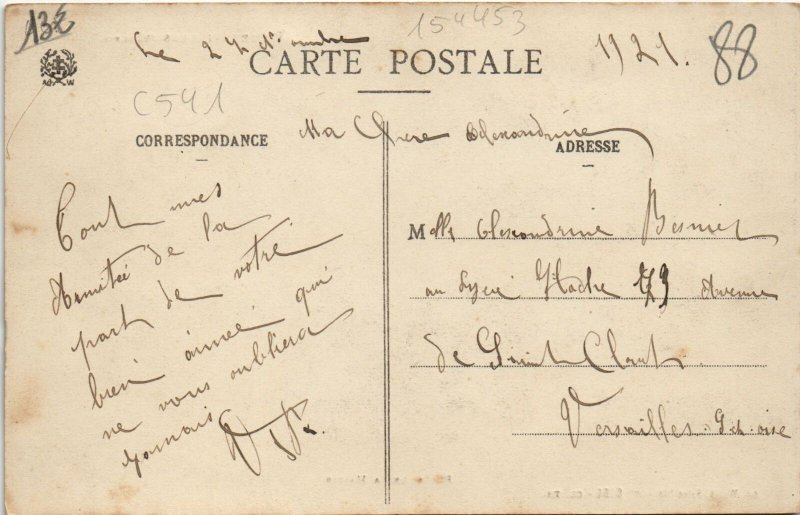 13E
154453
Le 24 1921.
CARTE POSTALE
88
C541
CORRESPONDANCE
Ma Chere Alexandrine
ADRESSE
Tout mes
Amitiée de la
part de votre
bien aimée qui
ne vous oubliera
Jamais
Melle Alexandrine
au Lycée Hoche 73 Avenue
de Saint Clout
Versailles S et oise